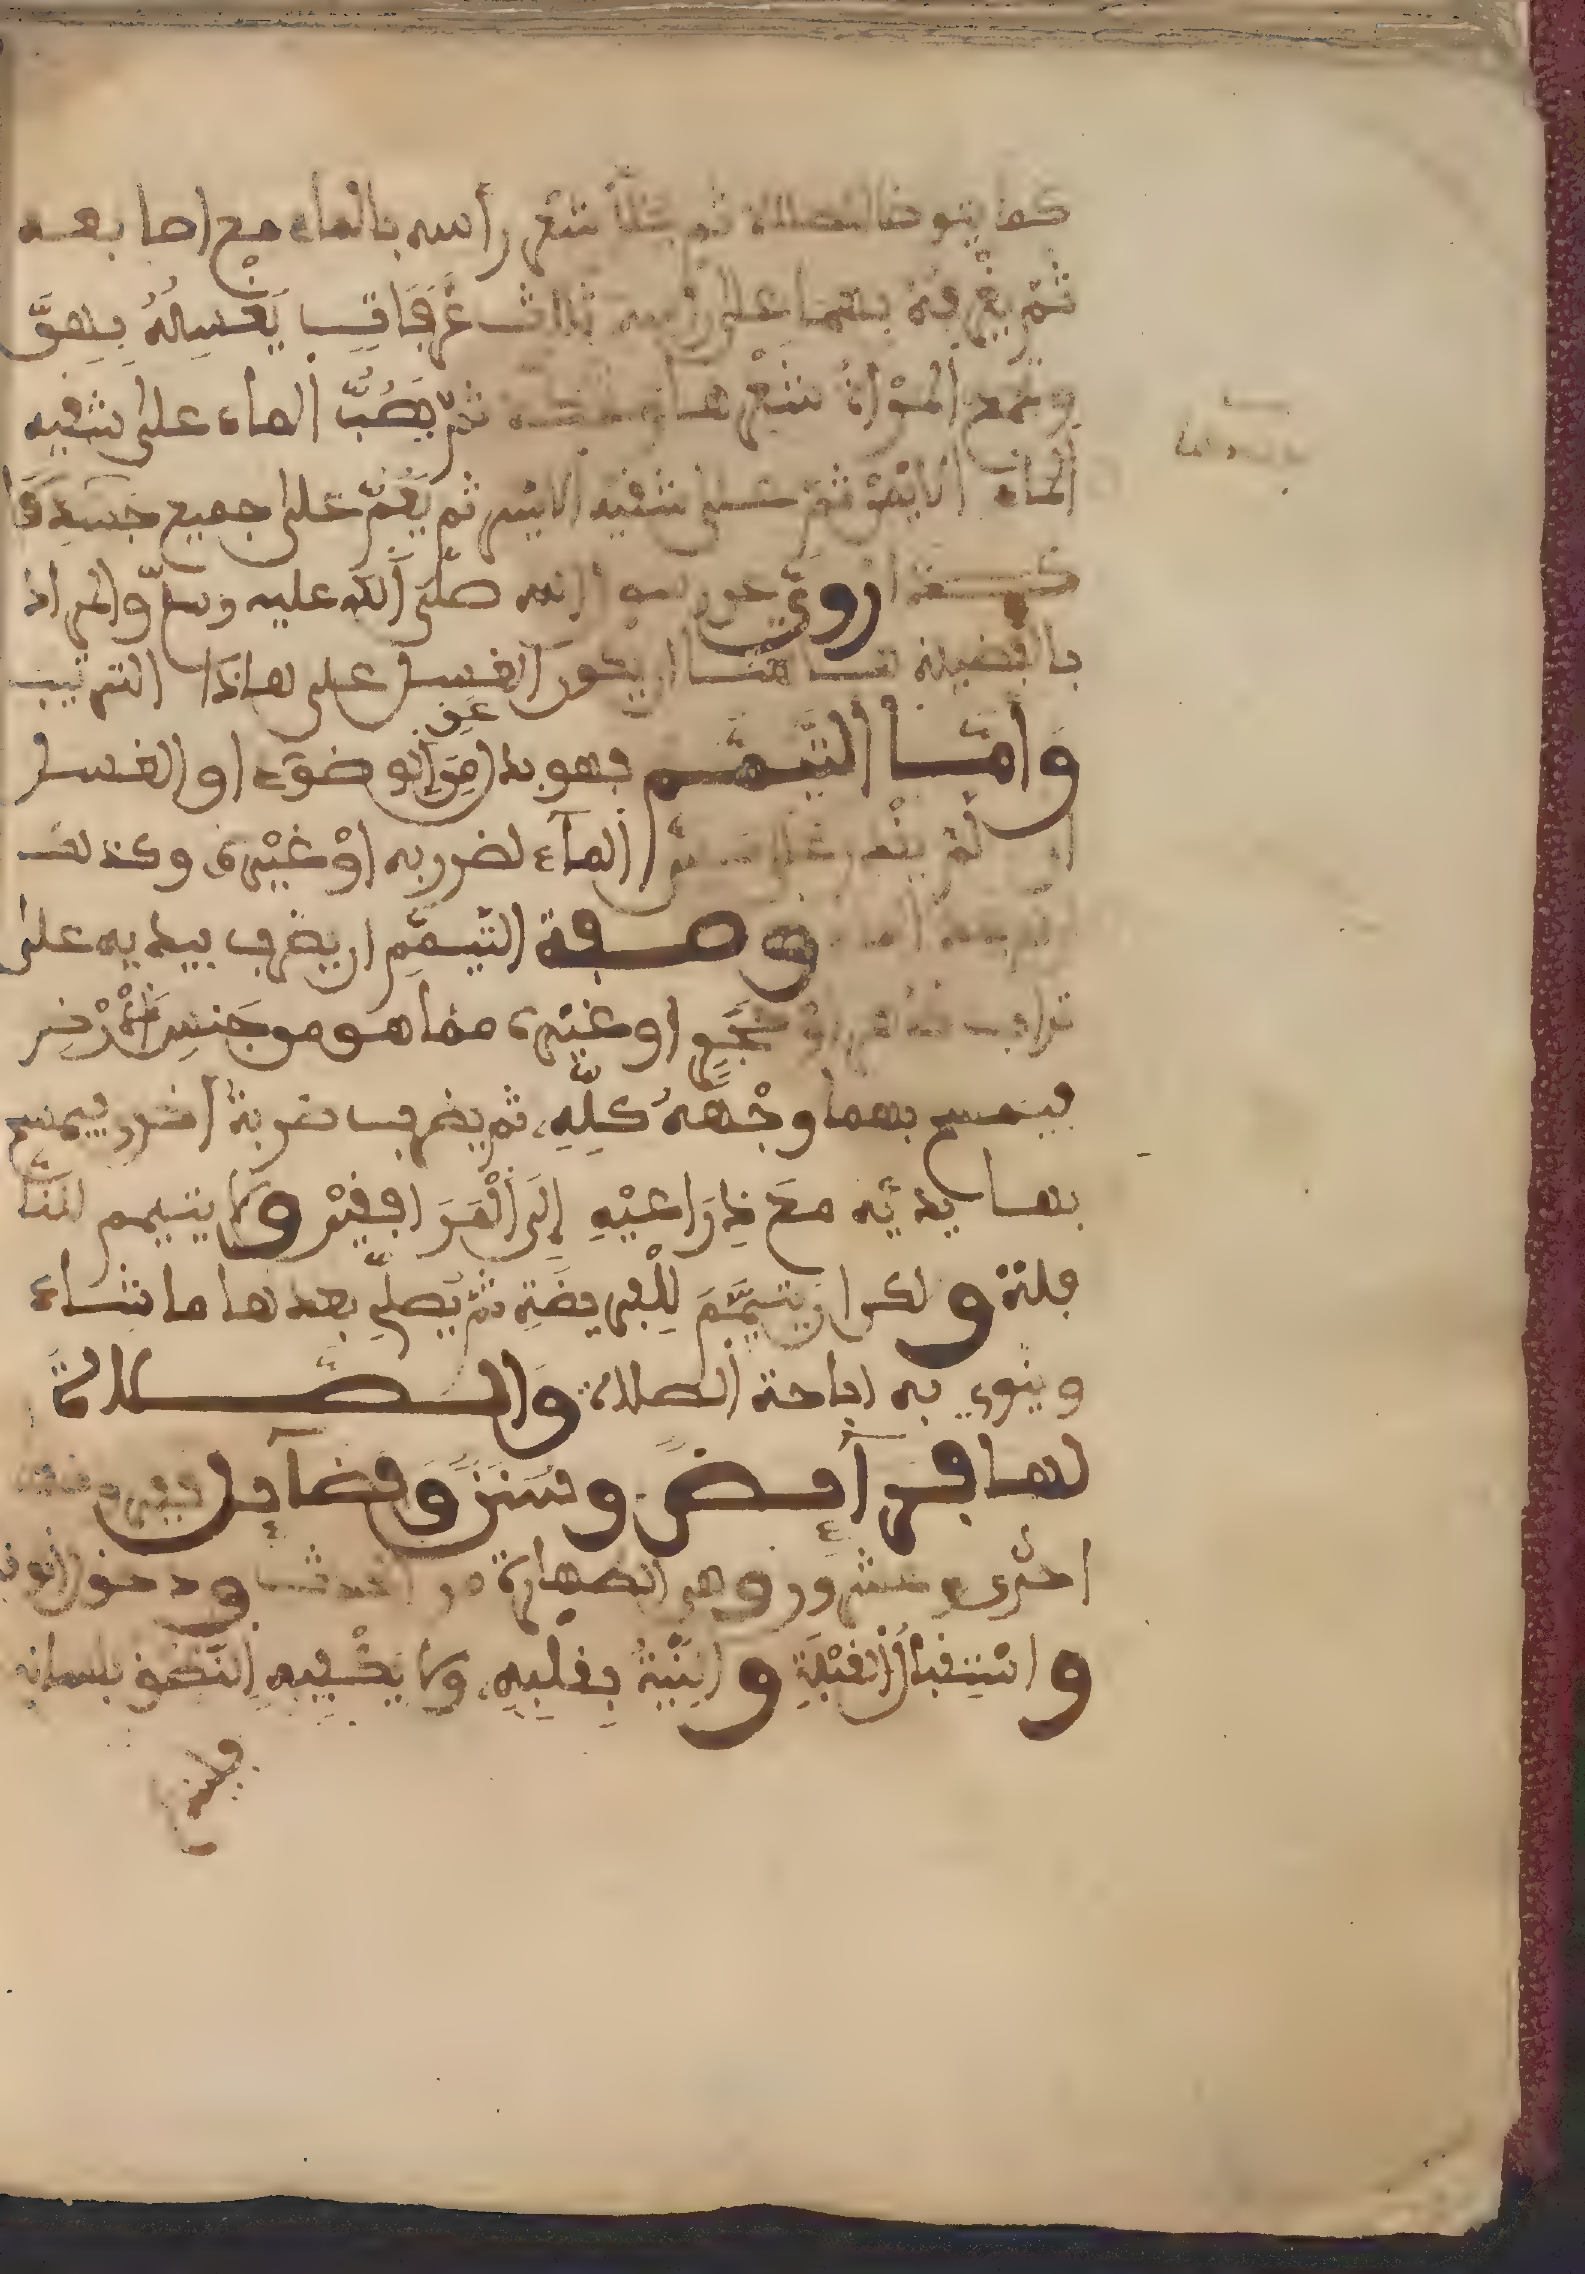 كما يتوضأ للصلاة ثم يخلل شعر رأسه بالماء مع اصابعه
ثمّ يغْرفه بهما على رأسه ثلاث غَرَفَاتٍ يَغْسِلُهُ بِهِنَّ
المرْأة شعْرها ثمّ يَصُبُّ الماء على شقه
الماء الايْمن ثمّ على شقه الايسر ثم يَعُمّ على جميع جسده
رويَ صلّى اللّه عليه وسلّم والمراد
بالفضيلة هاهنا ان يكون الغسل على هاذا الترتيب
وَأمّا التّيمّم فهو بدل مِن الوضوء او الغسل
عن
لمْ يقْدر على الماء لضرر به اوْ غيْره وكذلك
وصفة التّيمّمِ ان يضرب بيديه على
تراب او حَجَرٍ او غيْره مما هو من جنسِ الأرْض
فيمسح بهما وجْهَهُ كلّهِ ثم يضرب ضربة أخرى يمسح
بها يديْه معَ ذِرَاعَيْهِ إلَى الْمَرَافِقيْن ولا يتيمم لنا
فلة ولكن ان يتيمّمَ لِلْفريضَةِ ثمّ يُصلّي بعدها ما شاء
وينوي به اباحة الصلاة وَالصَّلاة
لها فرآئِضٌ وسُنَنٌ وَفضآئِل
احْدى وعشرون وهي الطهارة من الحدث ودخول الوقت
واسْتِقبالُ الْقبْلَةِ والنّيّةُ بِقَلْبِهِ ولا يكْفِيهِ النّطق بلسانه